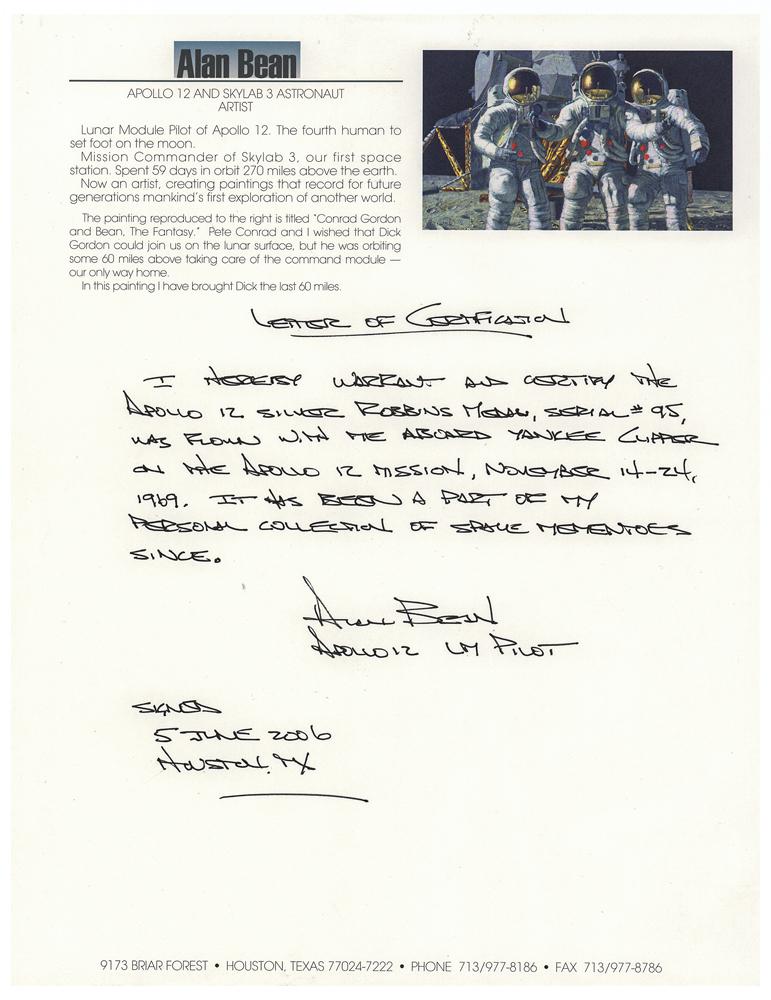 Alan Bean
APOLLO 12 AND SKYLAB 3 ASTRONAUT
ARTIST
Lunar Module Pilot of Apollo 12. The fourth human to
set foot on the moon.
Mission Commander of Skylab 3, our first space
station. Spent 59 days in orbit 270 miles above the earth.
Now an artist, creating paintings that record for future
generations mankind's first exploration of another world.
The painting reproduced to the right is titled "Conrad Gordon
and Bean, The Fantasy." Pete Conrad and I wished that Dick
Gordon could join us on the lunar surface, but he was orbiting
some 60 miles above taking care of the command module —
our only way home.
In this painting I have brought Dick the last 60 miles.
LETTER OF CERTIFICATION
I HEREBY WARRANT AND CERTIFY THE
APOLLO 12 SILVER ROBBINS MEDAL, SERIAL # 95,
WAS FLOWN WITH ME ABOARD YANKEE CLIPPER
ON THE APOLLO 12 MISSION, NOVEMBER 14-24,
1969. IT HAS BEEN A PART OF MY
PERSONAL COLLECTION OF SPACE MEMENTOES
SINCE.
ALAN BEAN
APOLLO 12 LM PILOT
SIGNED
5 JUNE 2006
HOUSTON, TX
9173 BRIAR FOREST • HOUSTON, TEXAS 77024-7222 • PHONE 713/977-8186 • FAX 713/977-8786